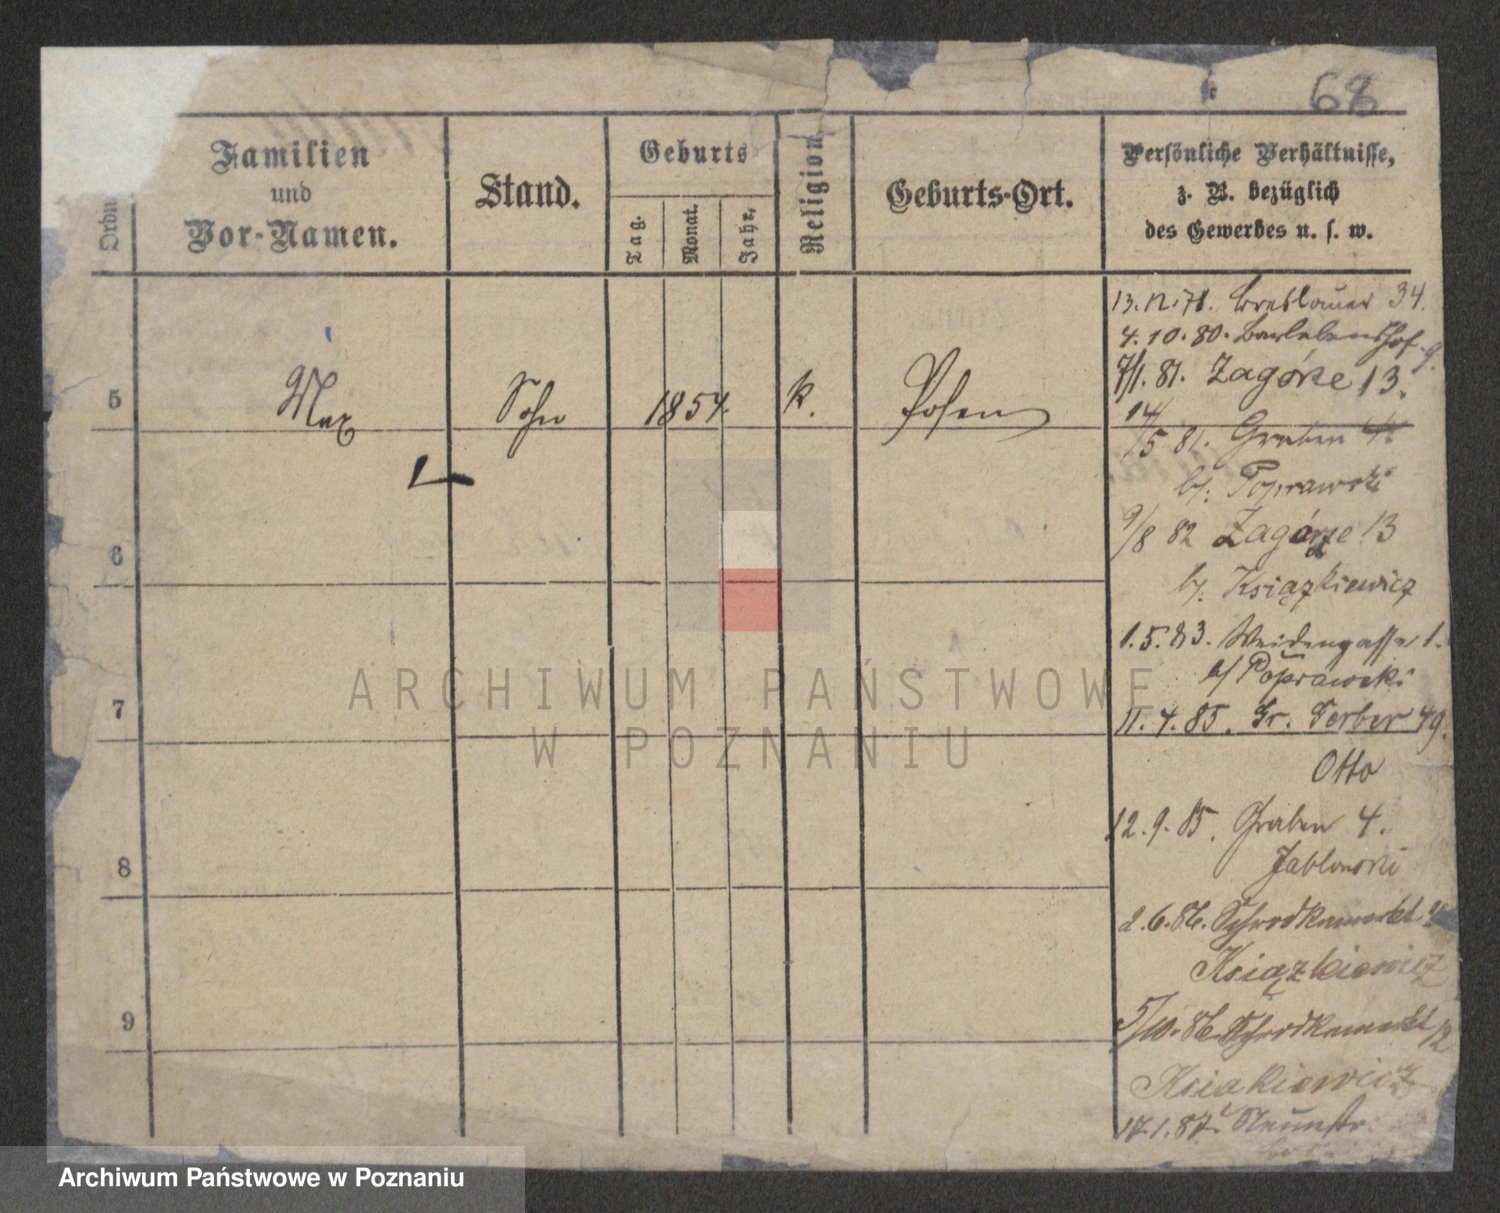 68
Familien
und
Vor-Namen.
Stand.
Geburts
Tag.
Monat.
Jahr,
Religion
Geburts-Ort.
Persönliche Verhältnisse,
z. B. bezüglich
des Gewerbes u. s. w.
Ordn
5
Max
Sohn
1854.
k.
Posen
6
7
8
9
13.12.71. Breslauer 34.
4.10.80. Bartelsenshof 9.
7/1. 81. Zagórze 13.
14/5 81. Graben
by. Poprawski
9/8 82 Zagórze 13
by. Książkiewicz
1.5.83. Weidengasse 1.
b/ Poprawski
11.4.85. Gr. Gerber 49.
Otto
12.9.85. Graben 4.
Jablonski
2.6.86. Schrodkamarkt
Książkiewicz
5/10.86 Schrodkamarkt 12
Ksiakiewicz
17.1.87.
ARCHIWUM PAŃSTWOWE
W POZNANIU
Archiwum Państwowe w Poznaniu